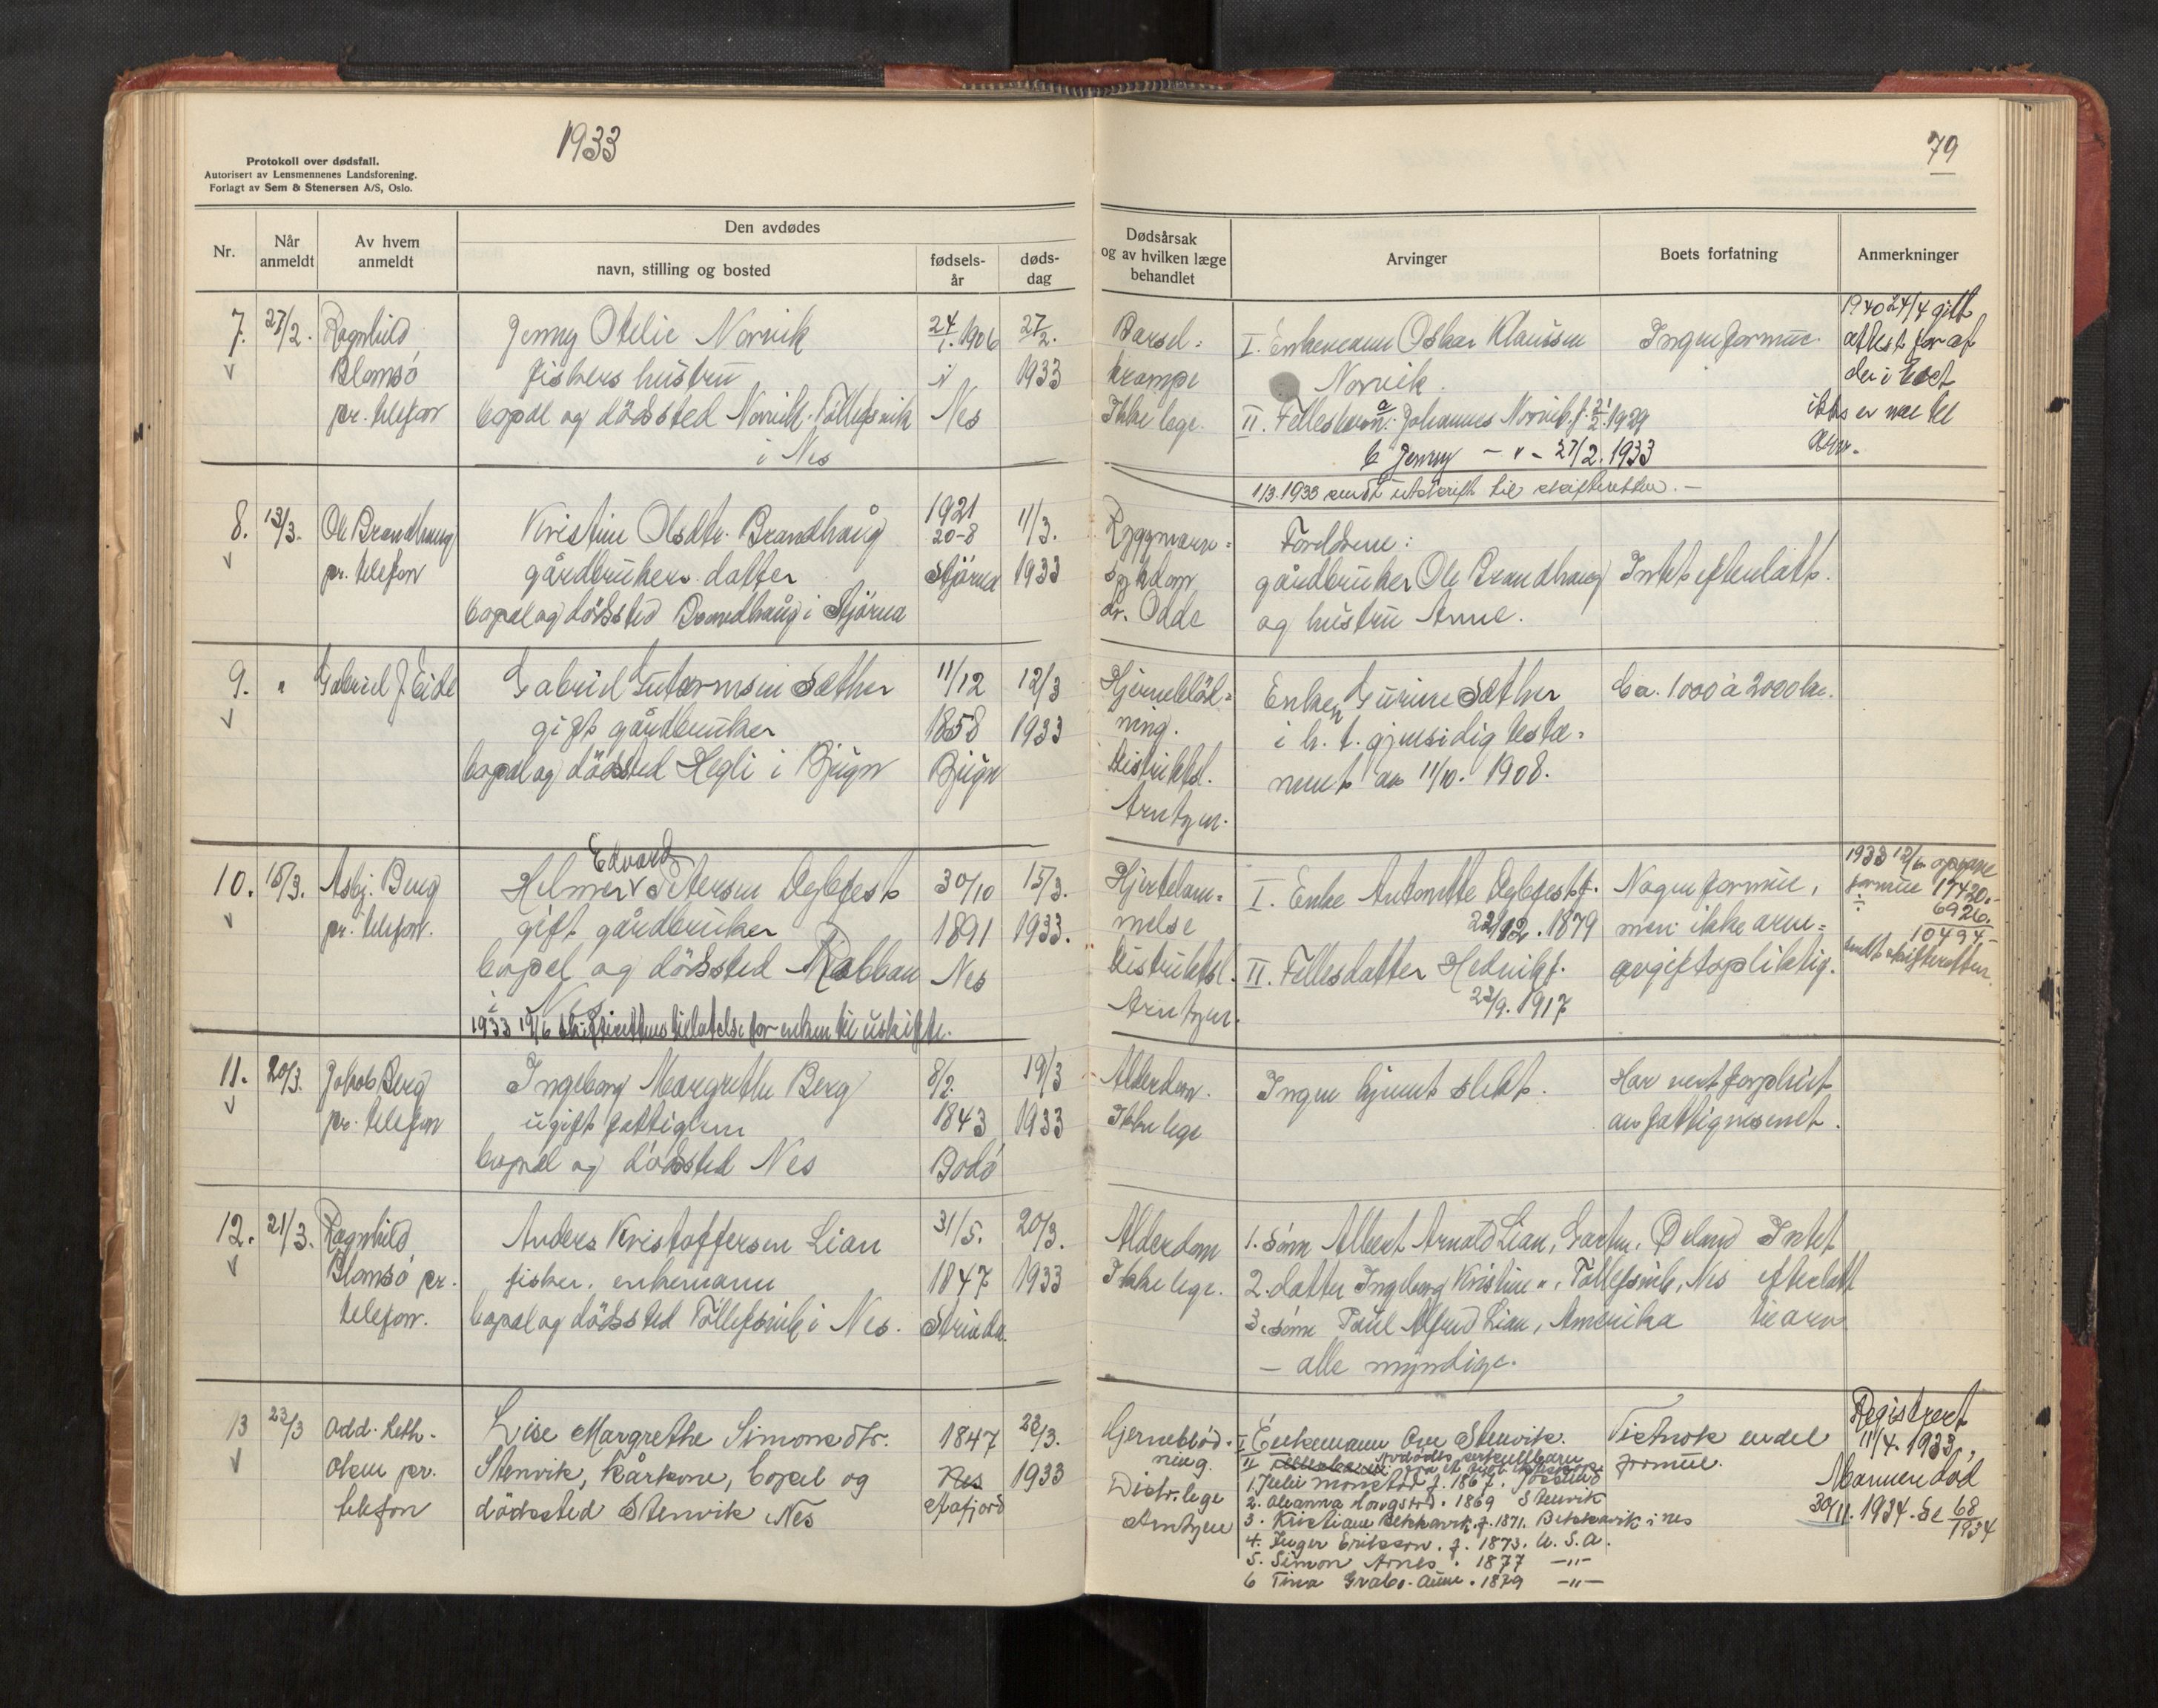 1933
79
Protokoll over dødsfall.
Autorisert av Lensmennenes Landsforening.
Forlagt av Sem & Stenersen A/S, Oslo.
Nr.
Når anmeldt
Av hvem anmeldt
Den avdødes
navn, stilling og bosted
fødsels-år
døds-dag
Dødsårsak og av hvilken læge behandlet
Arvinger
Boets forfatning
Anmerkninger
7. 27/2. Ragnhild Jenny Otelie Norvik 24/1. 1906 27/2.
Blomsö fiskers hustru 1933
pr. telefon bopæl og dödssted Norvik, Tøllefsvik Nes
i Nes
Barsel= I. Enkemann Oskar Klausen Ingen formue.
krampe Norvik.
Ikke lege. II. Fellesbarn: a Johannes Norvik f. 1929
b Jenny - " - 27/2. 1933
1/3. 1933 sendt utskrift til skifteretten. -
1940 24/4 gitt
attest for at
der i boet
ikke er noe til
8. 13/3. Ole Brandhaug Kristine Olsdtr. Brandhaug 1921 11/3.
20-8
pr. telefon gårdbrukers datter Stjørna 1933
bopæl og dödssted Brandhaug i Stjørna
Ryggmarv= Foreldrene:
sykdom gårdbruker Ole Brandhaug Intet efterlatt.
dr. Odde og hustru Anne.
9. " Gabriel J. Eide Gabriel Gutormsen Sæther 11/12 12/3
gift gårdbruker 1858 1933
bopæl og dödssted Hegli i Bjugn Bjugn
Hjerneblöd= Enken Gurine Sæther Ca. 1000 à 2000 kr.
ning. i h. t. gjensidig testa=
Distriktsl. ment av 11/10. 1908.
Arntzen.
10. 15/3. Asbj. Berg Helmer Edvard Petersen Deglefest 30/10 15/3.
pr. telefon. gift gårdbruker 1891 1933.
bopæl og dödssted Rabban Nes
i Nes
1933 19/6 skifterettens tillatelse for enken til uskifte.
Hjertelam= I. Enke Antonette Deglefest f. Nogen formue,
melse 22/12. 1879 men ikke arve=
Distriktsl. II. Fellesdatter Hedvik f. avgiftspliktig.
Arntzen. 23/9. 1917
1933 12/6 opgave
formue 17420.-
÷ 6926.-
10494.-
sendt skifteretten.
11. 20/3. Jakob Berg Ingeborg Margrethe Berg 8/2. 19/3
pr. telefon ugift fattiglem 1843 1933
bopæl og dödssted Nes Bodö
Alderdom. Ingen kjent slekt. Har vert forpleiet
Ikke lege av fattigvesenet.
12. 21/3. Ragnhild Anders Kristoffersen Lian 31/5. 20/3.
Blomsö pr. fisker. enkemann 1847 1933
telefon. bopæl og dödssted Tøllefsvik i Nes. Strinda.
Alderdom 1. sönn Albert Arnold Lian, Garten, Ørland Intet
Ikke lege. 2. datter Ingeborg Kristine ", Tøllefsvik, Nes efterlatt
3. sönn Paul Alfred Lian, Amerika til arv
- alle myndige.
13 23/3 Odd. Leth- Lise Margrethe Simonsdtr. 1847 23/3.
oken pr. Stenvik, kårkone, bopæl og Nes 1933
telefon dödssted Stenvik Nes Aafjord
Hjerneblød- I Enkemann Ove Stenvik. Vistnok endel
ning. II Avdødes formue.
Distr.lege 1. Julie Monstad f. 1867.
Arntzen 2. Oleanna Haugstad. 1869 Stenvik
3. Kristiane Bekkavik f. 1871. Bekkavik i Nes
4. Inger Erikson. f. 1873. U. S. A.
5. Simon Arnes. 1877 -"-
6 Tina Grabo. Aune. 1879 -"-
Registrert
11/4. 1933,
Mannen död
30/11. 1934. Se 68/1934